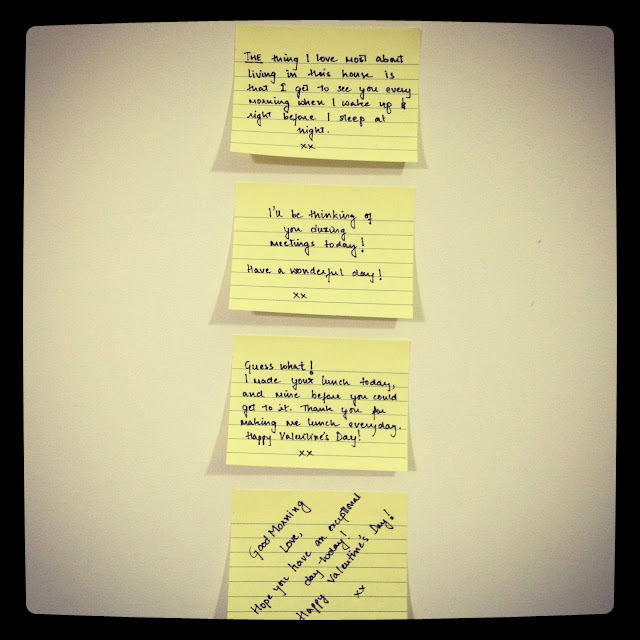 THE thing I love most about
living in this house is
that I get to see you every
morning when I wake up &
right before I sleep at
night.
xx
I'll be thinking of
you during
meetings today!
Have a wonderful day!
xx
Guess what!
I made your lunch today,
and mine before you could
get to it. Thank you for
making me lunch everyday.
Happy Valentine's Day!
xx
Good Morning
Love,
Hope you have an exceptional
day today!
Happy Valentine's Day!
xx